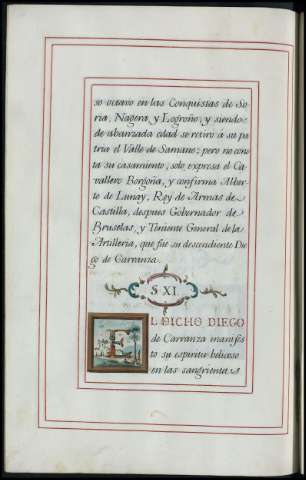 so octavo en las Conquistas de So
ria, Nagera y Logroño, y siendo
de abanzada edad se retiró á su pa
tria el Valle de Samano; pero no cons
ta su casamiento, solo expresa el Ca
vallero Borgoña, y confirma Alber
to de Lunay, Rey de Armas de
Castilla, despues Gobernador de
Bruselas, y Teniente General de la
Artilleria, que fue su descendiente Die
go de Carranza.
S XI.
EL DICHO DIEGO
de Carranza manifes
tó su espiritu belicoso
en las sangrientas